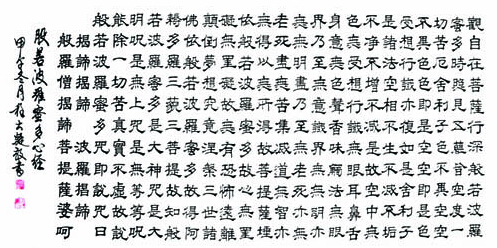 觀自在菩薩行深般若波羅
蜜多時照見五蘊皆空度一
切苦厄舍利子色不異空空
不異色色即是空空即是色
受想行識亦復如是舍利子
是諸法空相不生不滅不垢
不淨不增不減是故空中無
色無受想行識無眼耳鼻舌
身意無色聲香味觸法無眼
界乃至無意識界無無明亦
無無明盡乃至無老死亦無
老死盡無苦集滅道無智亦
無得以無所得故菩提薩埵
依般若波羅蜜多故心無罣
礙無罣礙故無有恐怖遠離
顛倒夢想究竟涅槃三世諸
佛依般若波羅蜜多故得阿
耨多羅三藐三菩提故知般
若波羅蜜多是大神咒是大
明咒是無上咒是無等等咒
能除一切苦真實不虛故說
般若波羅蜜多咒即說咒曰
揭諦揭諦 波羅揭諦
般羅僧揭諦菩提薩婆呵
般若波羅蜜多心經
甲午冬月 大 敬書